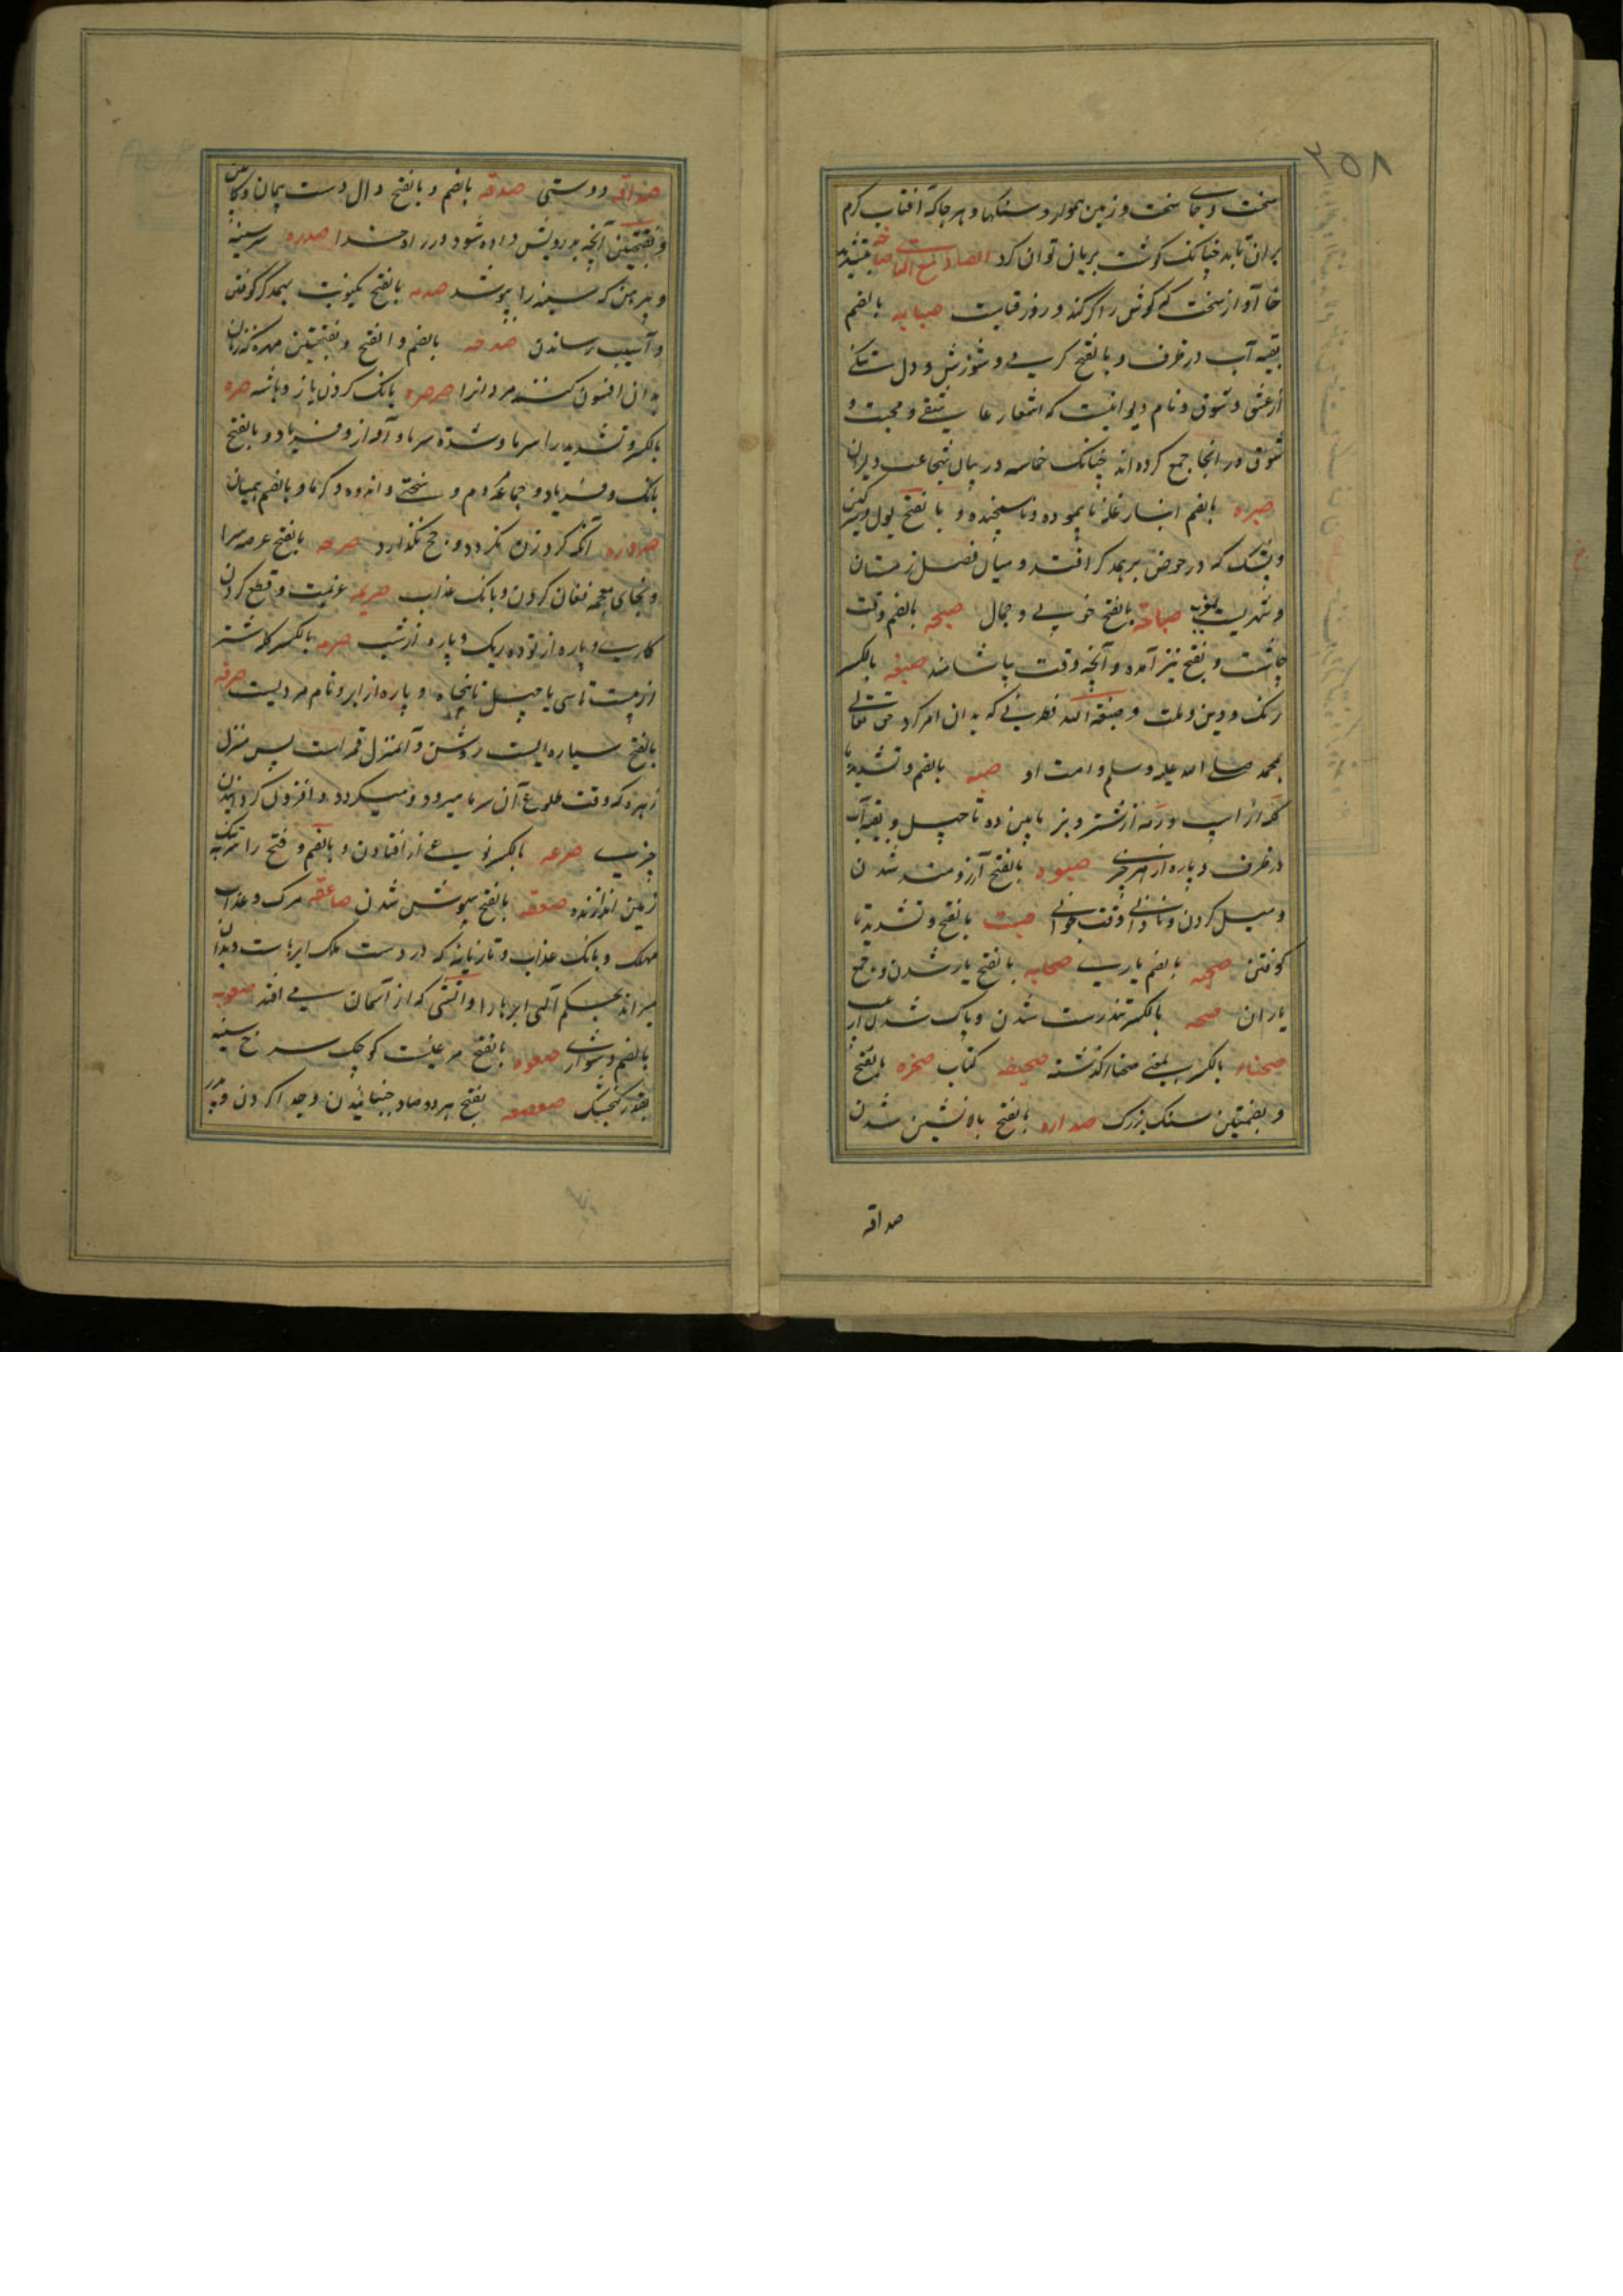 ۲۵۸
سخت و جای سخت و زمین هموار و سنگها و هر جا که آفتاب گرم
بر آن تابد چنانکه گوشت بریان توان کرد الصاد مع التا صاخه بتشدید
خا آواز سخت که گوش را کر کند و روز قیامت صبابه بالضم
بقیه آب در ظرف و بالفتح گرمی و سوزش و دل تنگی
از عشق و شوق و نام دیوانیست که اشعار عاشقی و محبت و
شوق در آنجا جمع کرده اند چنانکه حماسه در بیان شجاعت دلیران
صبره بالضم انبار غله ناپیموده و ناسنجیده و بالفتح بول و سرگین
و پشک که در حوض بر همدگر افتد و میان فصل زمستان
و شهریست بمغرب صباحة بالفتح خوبی و جمال صبحه بالضم وقت
چاشت و بفتح نیز آمده و آنچه وقت چاشت صبغه بالکسر
رنگ و دین و ملت و صبغة الله فطرتی که بدان امر کرد حق تعالی
بمحمد صلی الله علیه وسلم و امت او صبه بالضم و تشدید با
گله از اسپ و رمه از شتر و بز مابین ده تا چهل و بقیه آب
در ظرف و پاره از هر چیزی صبوه بالفتح آرزومند شدن
و میل کردن و نادانی وقت جوانی صت بالفتح و تشدید تا
کوفتن صحبه بالضم یاری صحابه بالفتح یار شدن و جمع
یاران صحه بالکسر تندرست شدن و پاک شدن از عیب
صحناء بالکسر بمعنی صحنا گذشته صحیفه کتاب صخره بالفتح
و بفتحتین سنگ بزرگ صداره بالفتح بالا نشین شدن
صداقه
صداقه دوستی صدقه بالضم و بالفتح دال دست پیمان و کابین
و بفتحتین آنچه بدرویش داده شود در راه خدا صدره سر سینه
و پیرهن که سینه را پوشد صدمه بالفتح یکنوبت بهمدگر کوفتن
و آسیب رساندن صدحه بالضم و الفتح و بفتحتین مهره که زنان
بدان افسون کنند مردانرا صرصره بانگ کردن باز و باشه صره
بالکسر و تشدید را سرما و شدة سرما و آواز و فریاد و بالفتح
بانگ و فریاد و جماعه مردم و سختی و اندوه و گرما و بالضم همیان
صروره آنکه گرد زن نگردد و حج نگذارد صرحه بالفتح عرصه سرا
و بخای معجمه فغان کردن و بانگ عذاب صریمه عزیمت و قطع کردن
کاری و پاره از توده ریک و پاره از شب صرمه بالکسر گله شتر
از بیست تا سی یا چهل تا پنجاه و پاره از ابر و نام مردیست صرفه
بالفتح سیاره ایست روشن و آنمنزل قمر است پس منزل
زبره که وقت طلوع آن سرما میرود و میگردد و افزون گردانیدن
چیزی صرعه بالکسر نوعی از افتادن و بالضم و فتح را آنکه
زمین اندازنده صعقه بالفتح بیهوش شدن صاعقه مرگ و عذاب
مهلک و بانگ عذاب و تازیانه که در دست ملک ابرهاست و بدان
میراند بحکم الهی ابرها را و آتشی که از آسمان می افتد صعوبه
بالضم دشواری صعوه بالفتح مرغیست کوچک سرخ سینه
بقدر گنجشک صعصعه بفتح هر دو صاد جنبانیدن و جدا کردن و نام پدر